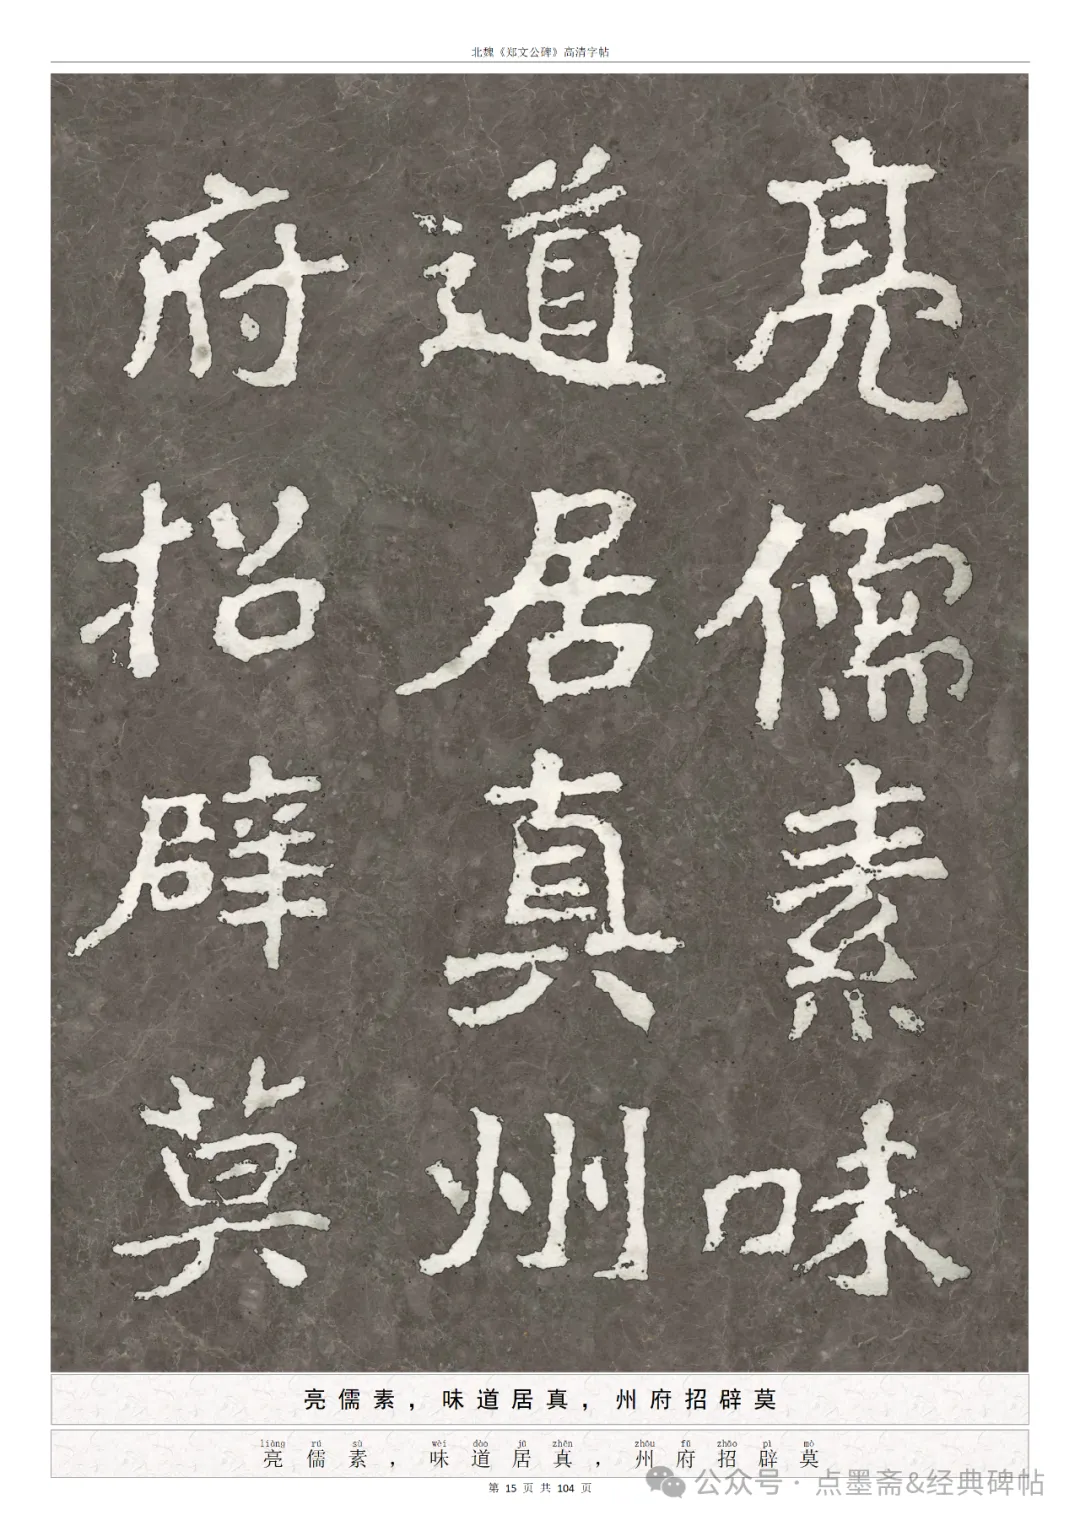 北魏《郑文公碑》高清字帖
亮儒素味
道居真州
府招辟莫
亮儒素，味道居真，州府招辟莫
liàng rú sù wèi dào jū zhēn zhōu fǔ zhāo pì mò
亮儒素，味道居真，州府招辟莫
第 15 页 共 104 页
公众号 · 点墨斋&经典碑帖